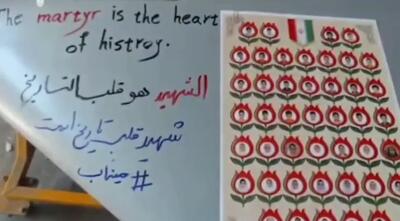 The martyr is the heart
of histroy.
الشهيد هو قلب التاريخ
شهید قلب تاریخ است
#میناب